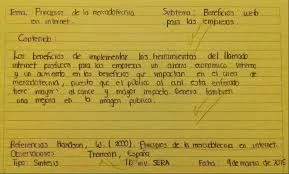 Tema: Principios de la mercadotecnia Subtema: Beneficios web
en internet. para las empresas.
Contenido:
Los beneficios de implementar las herramientas del llamado
internet producen para las empresas un ahorro económico interno
y un aumento en los beneficios que impactan en el área de
mercadotecnia, puesto que el público al cual está enfocado
tiene mayor alcance y mayor impacto. Genera también
una mejora en la imagen pública.
Referencias: Hanson, W. (2000). Principios de la mercadotecnia en internet.
Observaciones: Thomson, España
Tipo: Síntesis SERA Fecha: 9 de marzo de 2015